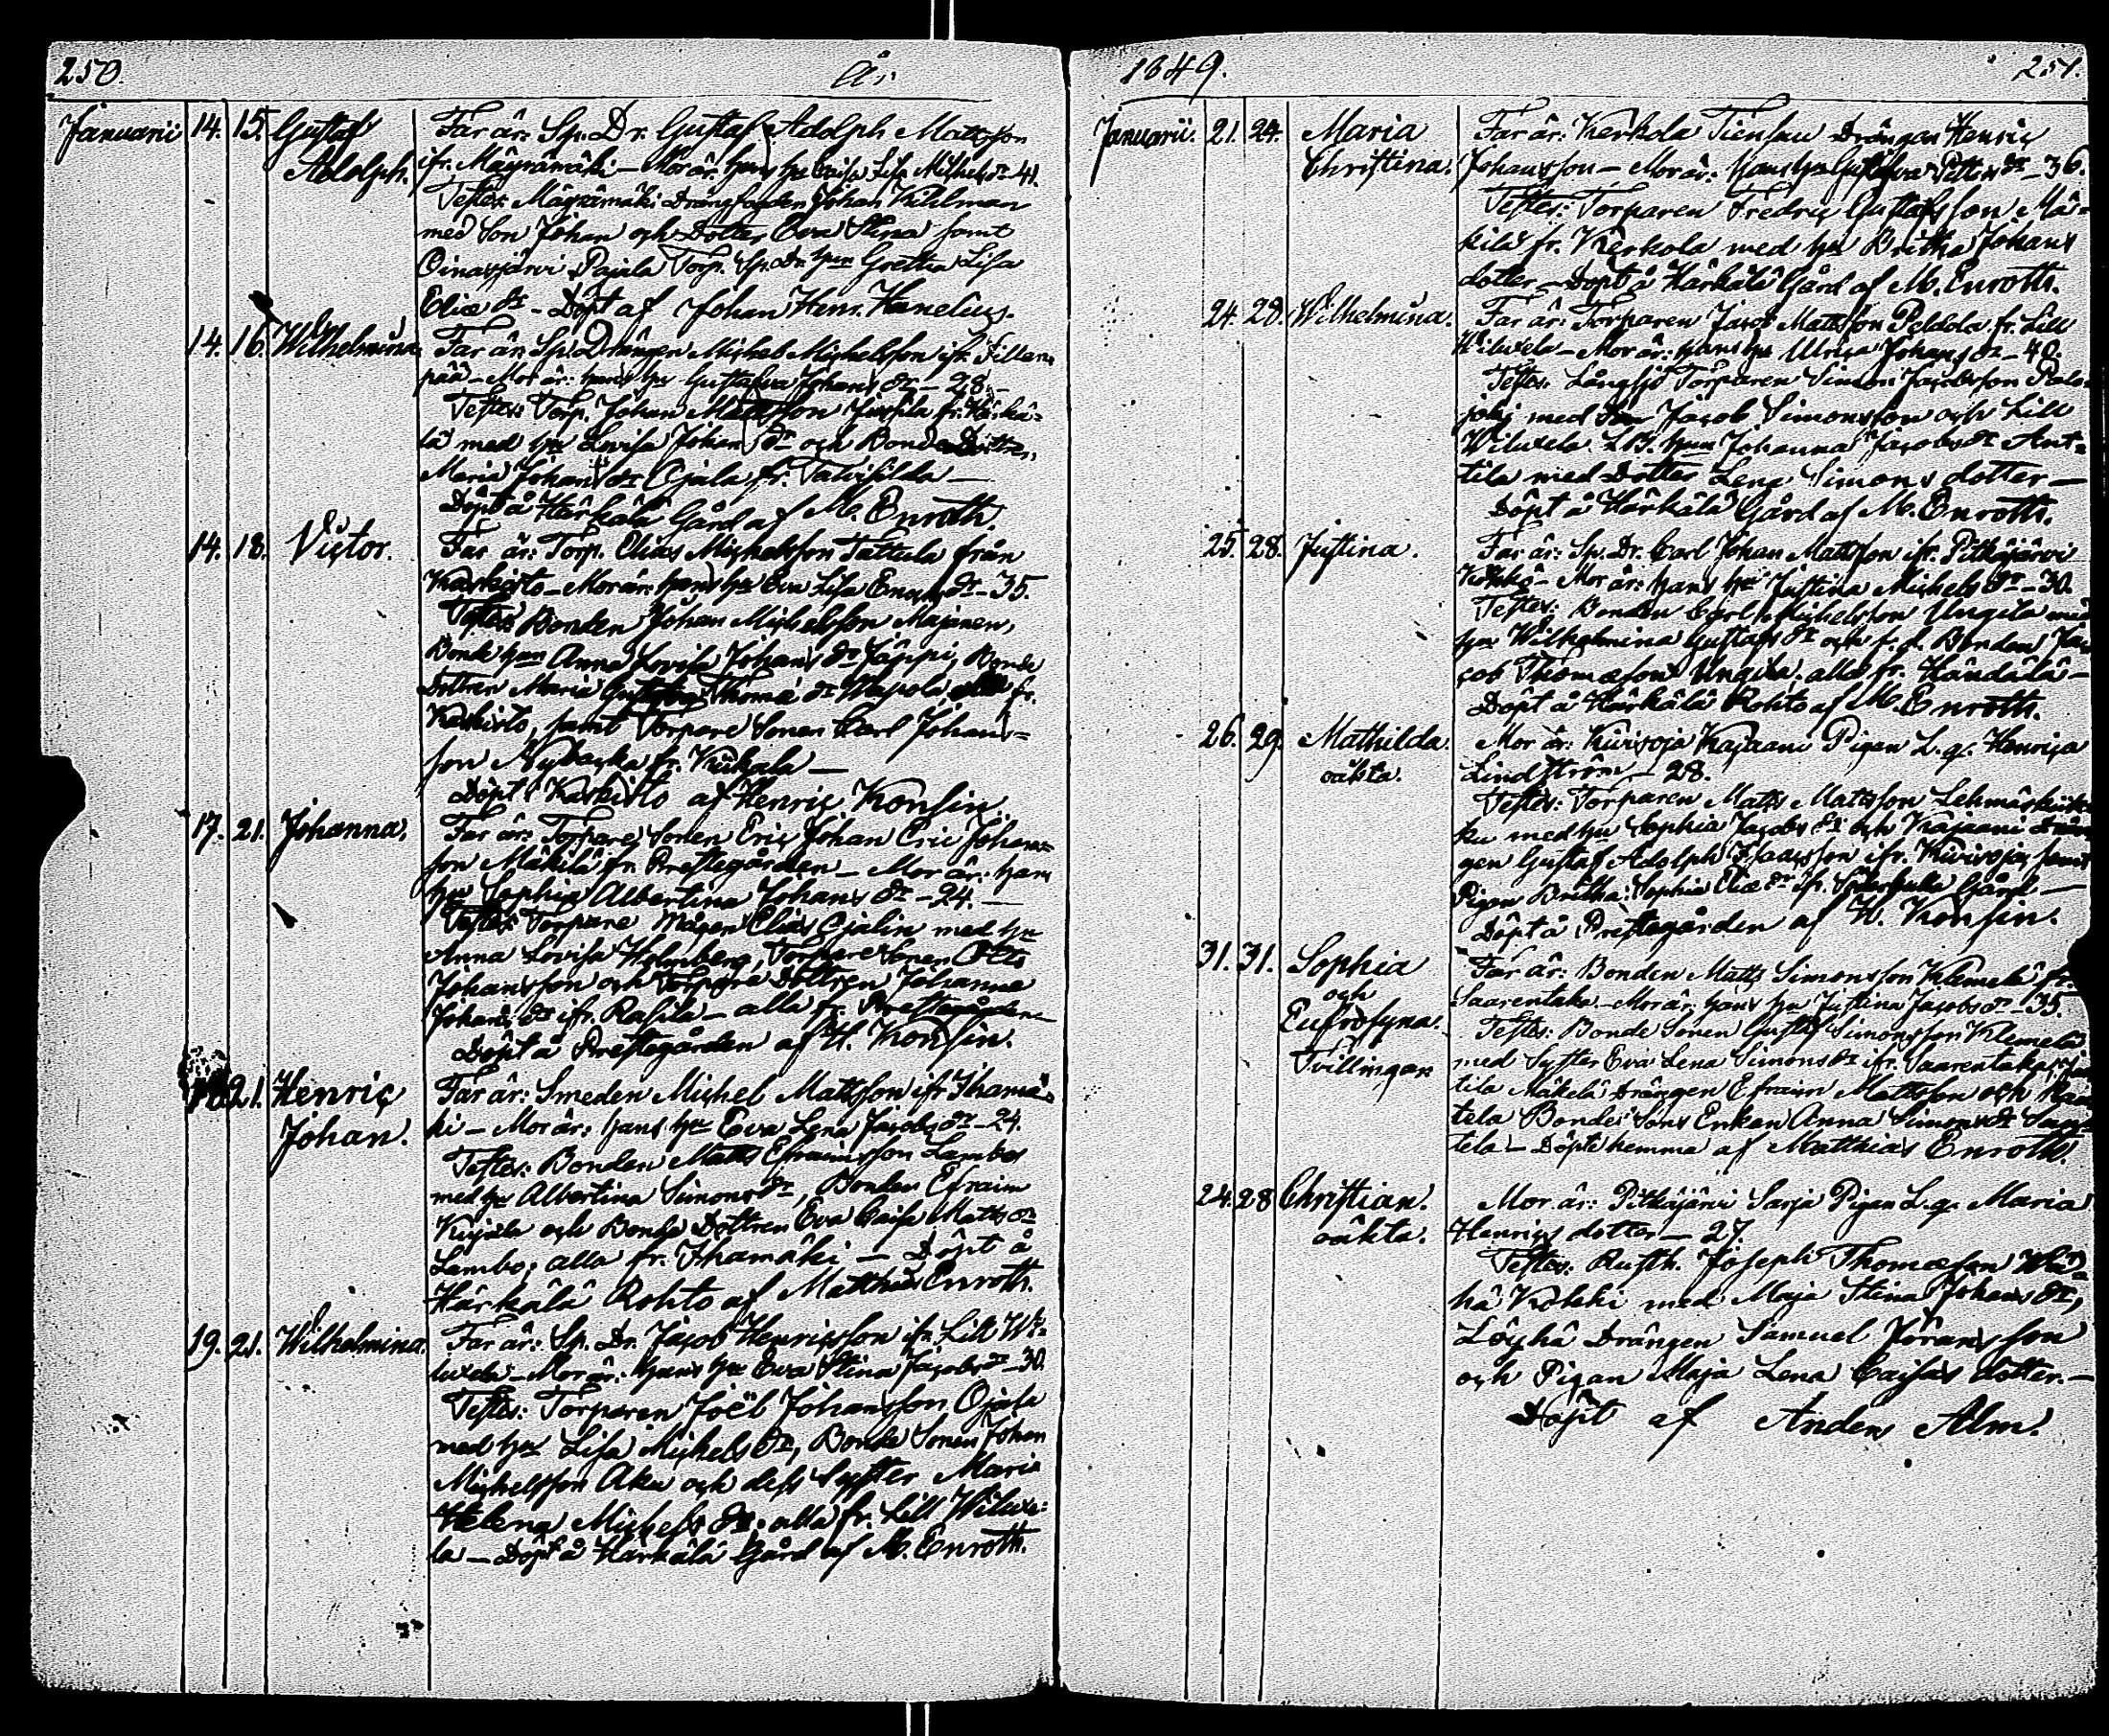 250. År
Januarii 14. 15. Gustaf Far är: Sp. Dr. Gustaf Adolph Mattsson
Adolph. ifr. Mäyrämäki – Mor är: hans hu Caisa Lisa Michels dr – 41.
Testes: Mäyrämäki Drängfogden Johan Kihlman
med Son Johan och Dotter Eva Stina samt
Oinasjärvi Pajala Torp. Sp. Dr. hun Gretha Lisa
Eliæ dr – Döpt af Johan Henr. Hanelius.
14. 16. Wilhelmina Far är: Sp. Drängen Michel Michelsson ifr.
pää – Mor är: hans hu Gustafva Johans dr – 28. –
Testes: Torp. Johan Mattsson fr. Härkä=
lä med hu Lovisa Johans dr och Bonde Dottren
Maria Johans dr Ojala fr. Talvisilda –
Döpt å Härkälä Gård af M. Enroth.
14. 18. Victor. Far är: Torp. Elias Michelsson Tattula från
Kaskisto – Mor är: hans hu Eva Lisa Enochs dr – 35.
Testes: Bonden Johan Michelsson Majanen,
Bonde hun Anna Lovisa Johans dr Jäppi, Bonde
Dottren Maria Thomæ dr Uпola, alla fr.
Kaskisto, samt Torpare Sonen Carl Johans=
son Nybacka fr. Kukala –
Döpt i Kaskisto af Henric Konsin.
17. 21. Johanna. Far är: Torpare Sonen Eric Johan Eric Johans=
son Mäkilä fr. Prestegården – Mor är: hans
hu Sophia Albertina Johans dr – 24. –
Testes: Torpare Mågen Elias Ojalin med hu
Anna Lovisa Holmberg, Torpare Sonen Otto
Johansson och Torpare Dottren Johanna
Johans dr ifr. Rasila – alla fr. Prestegården –
Döpt å Prestegården af H. Konsin.
18. 21. Henric Far är: Smeden Michel Mattsson ifr Ihamä=
Johan. ki – Mor är: hans hu Eva Lena Jacobs dr – 24.
Testes: Bonden Matts Efraimsson Lambo
med hu Albertina Simons dr, Bonden Efraim
Kujala och Bonde Dottren Eva Caisa Matts dr
Lambo, alla fr. Ihamäki – Döpt å
Härkälä Rohto af Matthias Enroth.
19. 21. Wilhelmina. Far är: Sp. Dr. Jacob Henricsson ifr. Lill Wi=
luxela – Mor är: hans hu Eva Stina Jacobs dr – 30.
Testes: Torparen Joël Johansson Ojala
med hu Lisa Michels dr, Bonde Sonen Johan
Michelsson Aku och dess Syster Maria
Helena Michels dr; alla fr. Lill Wiluxe=
la – Döpt å Härkälä Gård af M. Enroth.
1849. 251.
Januarii. 21. 24. Maria Far är: Kerkola Tiensuu Drängen Henric
Christina. Johansson – Mor är: hans hu Gustafva Petters dr – 36.
Testes: Torparen Fredric Gustafsson Mä=
kilä fr. Kerkola med hu Britha Johans
dotter – Döpt å Härkälä Gård af M. Enroth.
24. 28. Wilhelmina. Far är: Torparen Jacob Mattsson Peldola fr. Lill
Wiluxela – Mor är: hans hu Ulrica Johans dr – 40.
Testes: Långsjö Torparen Simon Jacobsson Palo=
joki med Jacob Simonsson och Lill
Wiluxela hun Johanna Jacobs dr Ant=
tila med Dotter Lena Simons dotter –
Döpt å Härkälä Gård af M. Enroth.
25. 28. Justina. Far är: Sp. Dr. Carl Johan Mattsson ifr. Pitkäjärvi
– Mor är: hans hu Justina Michels dr – 30.
Testes: Bonden Carl Michelsson Ungila med
hu Wilhelmina Gustafs dr och f. d. Bonden Ja=
cob Thomasson Ungila; alla fr. Händälä –
Döpt å Härkälä Rohto af M. Enroth.
26. 29. Mathilda Mor är: Kivisoja Kajaani Pigan L. q. Henrica
oäkta. Lindström – 28.
Testes: Torparen Matts Mattsson
ku med hu Sophia Jacobs dr och Kajaani Drän
gen Gustaf Adolph Isaacsson ifr. Kivisoja, samt
Pigan Britha Sophia Eliæ dr ifr. Gård –
Döpt å Prestegården af H. Konsin.
31. 31. Sophia Far är: Bonden Matts Simonsson Klemelä fr.
och Saarentaka – Mor är: hans hu Justina Jacobs dr – 35.
Eufrosyna. Testes: Bonde Sonen Gustaf Simonsson Klemelä
Tvillingar med Syster Eva Lena Simons dr ifr. Saarentaka,
tila Mäkelä Drängen Efraim Mattsson och
tela Bonde Sons Enkan Anna Simons dr
tela – Döpte hemma af Matthias Enroth.
24. 28 Christian. Mor är: Pitkäjärvi Sarja Pigan L. q. Maria
oäkta. Henrics dotter – 27.
Testes: Rusth. Joseph Thomasson
hä Kolcki med Maja Stina Johans dr,
Löyhä Drängen Samuel Göransson
och Pigan Maja Lena Caisas dotter. –
Döpt af Anders Alm.